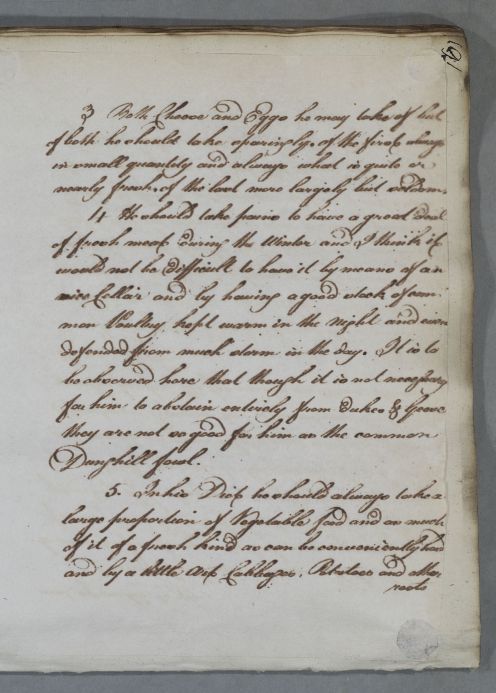 (61
3 Both Cheese and Eggs he may take of but
of both he should take sparingly, of the first always
in small quantity and always what is quite or
nearly fresh, of the last more largely but seldom.
4 He should take pains to have a great deal
of fresh meat during the Winter and I think it
would not be difficult to have it by means of an
Cellar and by having a good stock of com-
mon Poultry, kept warm in the Night and even
defended from much storm in the day. It is to
be observed here that though it is not necessary
for him to abstain entirely from Dukes & Geese
they are not so good for him as the common
Dunghill fowl.
5. In his Diet he should always take a
large proportion of Vegetable food and as much
of it of a fresh kind as can be conveniently had
and by a little Art Cabbages, Potatoes and other
roots